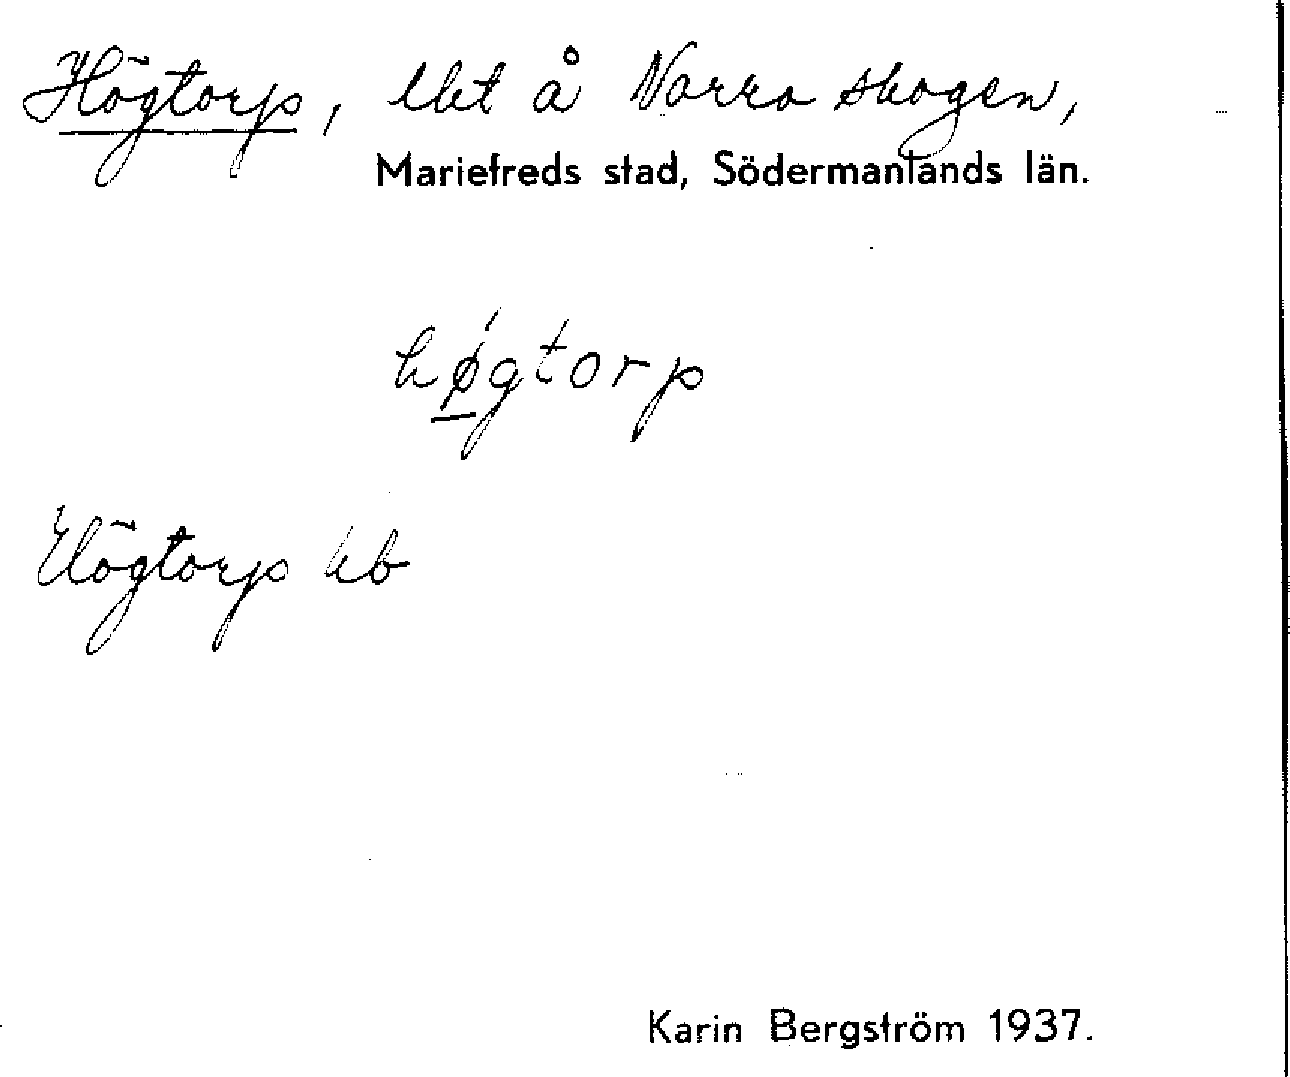 Högtorp, lht å Norra skogen,
Mariefreds stad, Södermanlands län.
hǿ̲gtorp
Högtorp kb
Karin Bergström 1937.